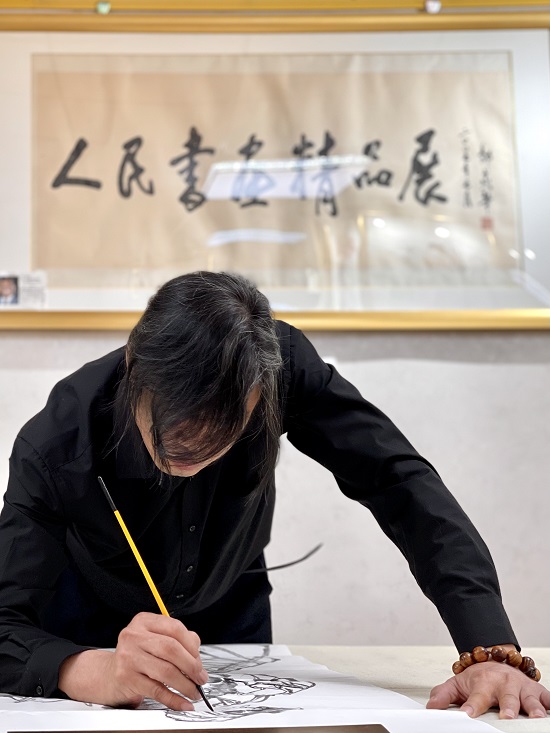 人民書画精品展